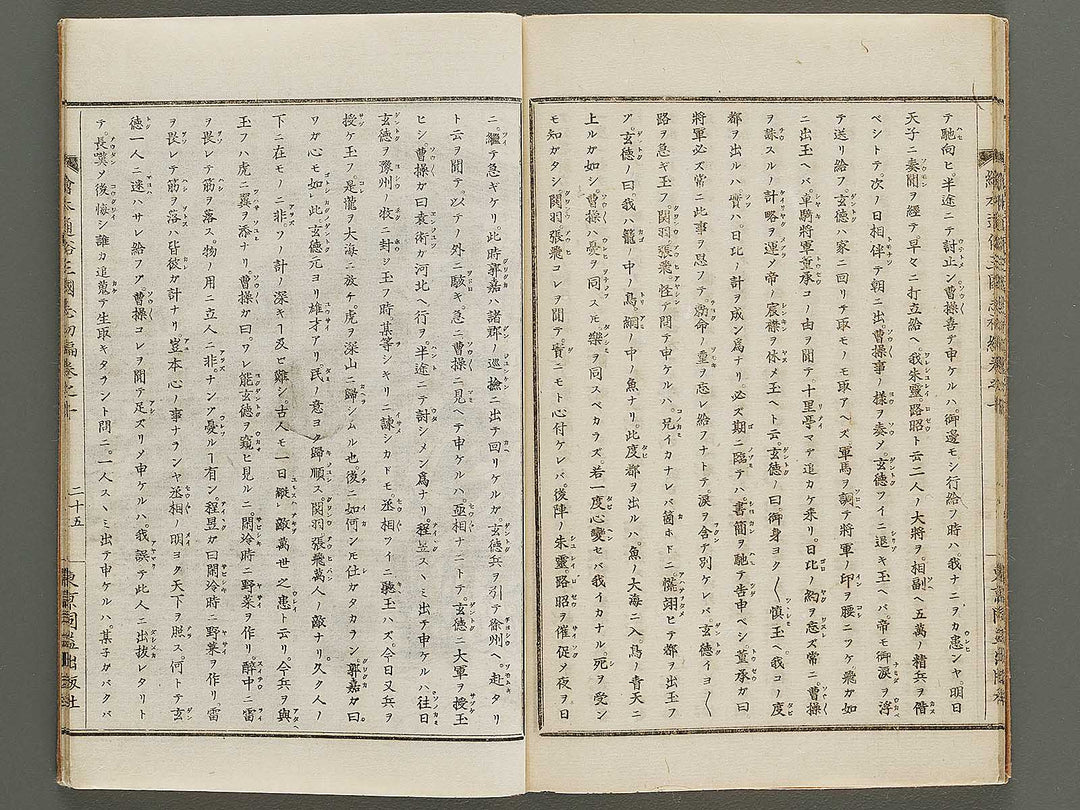 テ馳向ヒ。半途ニテ討止ン。曹操喜テ申ケルハ。御邊モシ行給フ時ハ。我ナニヲカ患ンヤ。明日
天子ニ奏聞ヲ經テ。早々ニ打立給ヘ。我朱靈路昭ト云二人ノ大將ヲ相副ヘ。五萬ノ精兵ヲ借
ベシトテ。次ノ日相伴テ朝ニ出。曹操事ノ様ヲ奏メ。玄德ツイニ退キ玉ヘバ。帝モ御涙ヲ浮
テ送リ給フ。玄德ハ家ニ回リテ取モノモ取アヘズ。軍馬ヲ調テ將軍ノ印ヲ腰ニツケ。飛カ如
ニ出玉ヘバ。車騎將軍董承コノ由ヲ聞テ。十里亭マテ追カケ來リ。日比ノ約ヲ忘ズ。常ニ曹操
ヲ誅スルノ計略ヲ運ノ。帝ノ宸襟ヲ休メ玉ヘト云。玄德ノ曰。御身ヨク〳〵慎玉ヘ。我コノ度
都ヲ出ルハ。實ハ日比ノ計ヲ成ン爲ナリ。必ズ期ニ臨テハ。書簡ヲ馳テ告申ベシ。董承カ曰
將軍必ズ常ニ此事ヲ思フテ。勅命ノ重ヲ忘レ給フナトテ。淚ヲ含テ別ケレバ。玄德イヨ〳〵
路ヲ急キ玉フ。関羽張飛怪デ問ケルハ。兄イカナレバ箇ホドニ慌翊ヒテ都ヲ出玉フ
ヤ。玄德ノ曰。我ハ籠ノ中ノ鳥。網ノ中ノ魚ナリ。此度都ヲ出ルハ。魚ノ大海ニ入。鳥ノ青天ニ
上ルガ如シ。曹操ハ憂ヲ同スモ。樂ヲ同スベカラズ。若一度心變セバ。我イカナル死ヲ受ン
モ知ガタシ。関羽張飛コレヲ聞テ。實ニモト心付ケレバ。後陣ノ朱靈路昭ヲ催促メ。夜ヲ日
ニ繼テ急ギケリ。此時郭嘉ハ諸郡ノ巡撿ニ出テ回リケルガ。玄德兵ヲ引テ徐州ヘ赴タリ
ト云ヲ聞テ。以テノ外ニ駭キ。急ニ曹操ニ見ヘテ申ケルハ。丞相ナニトテ。玄德ニ大軍ヲ授玉
ヒシ。曹操カ曰。袁術カ河北ヘ行ヲ。半途ニテ討シメン爲ナリ。程昱スヽミ出テ申ケルハ。往日
玄德ヲ豫州ノ牧ニ封ジ玉フ時。某等シキリニ諫シカドモ。丞相ツイニ聽玉ハズ。今日又兵ヲ
授ケ玉フ。是龍ヲ大海ニ放チ。虎ヲ深山ニ歸シムル也。後ニ如何ントモ仕ガタカラン。郭嘉カ曰。
ワガ心モ如此。玄德元ヨリ雄才アリ。民ノ意ヨク歸順ス。関羽張飛萬人ノ敵ナリ。久ク人ノ
下ニ在モノニ非。ソノ計ノ深キ事及ビ難シ。古人モ一日縱敵萬世之患ト云リ。今兵ヲ與
玉フハ。虎ニ翼ヲ添ナリ。曹操カ曰。ワレ能玄德ヲ窺ヒ見ルニ。閑冷時ニ野菜ヲ作リ。醉中ニ雷
ヲ畏レテ筋ヲ落ス。物ノ用ニ立人ニ非。ナンゾ憂ル事有ン。程昱カ曰。閑冷時ニ野菜ヲ作リ。雷
ヲ畏レテ筋ヲ落ハ。皆彼カ計ナリ。豈本心ノ事ナランヤ。丞相ノ明ヨク天下ヲ照ス。何トテ玄
德一人ニ迷ハサレ給フゾ。曹操コレヲ聞テ。足ズリメ申ケルハ。我誤テ此人ニ出拔レタリト
テ。長嘆メ後悔シ。誰カ追蒐テ生取キタラント問ニ。一人スヽミ出テ申ケルハ。某子ガバクバ
繪本通俗三國志初編卷之十 二十五 東京同益出版社